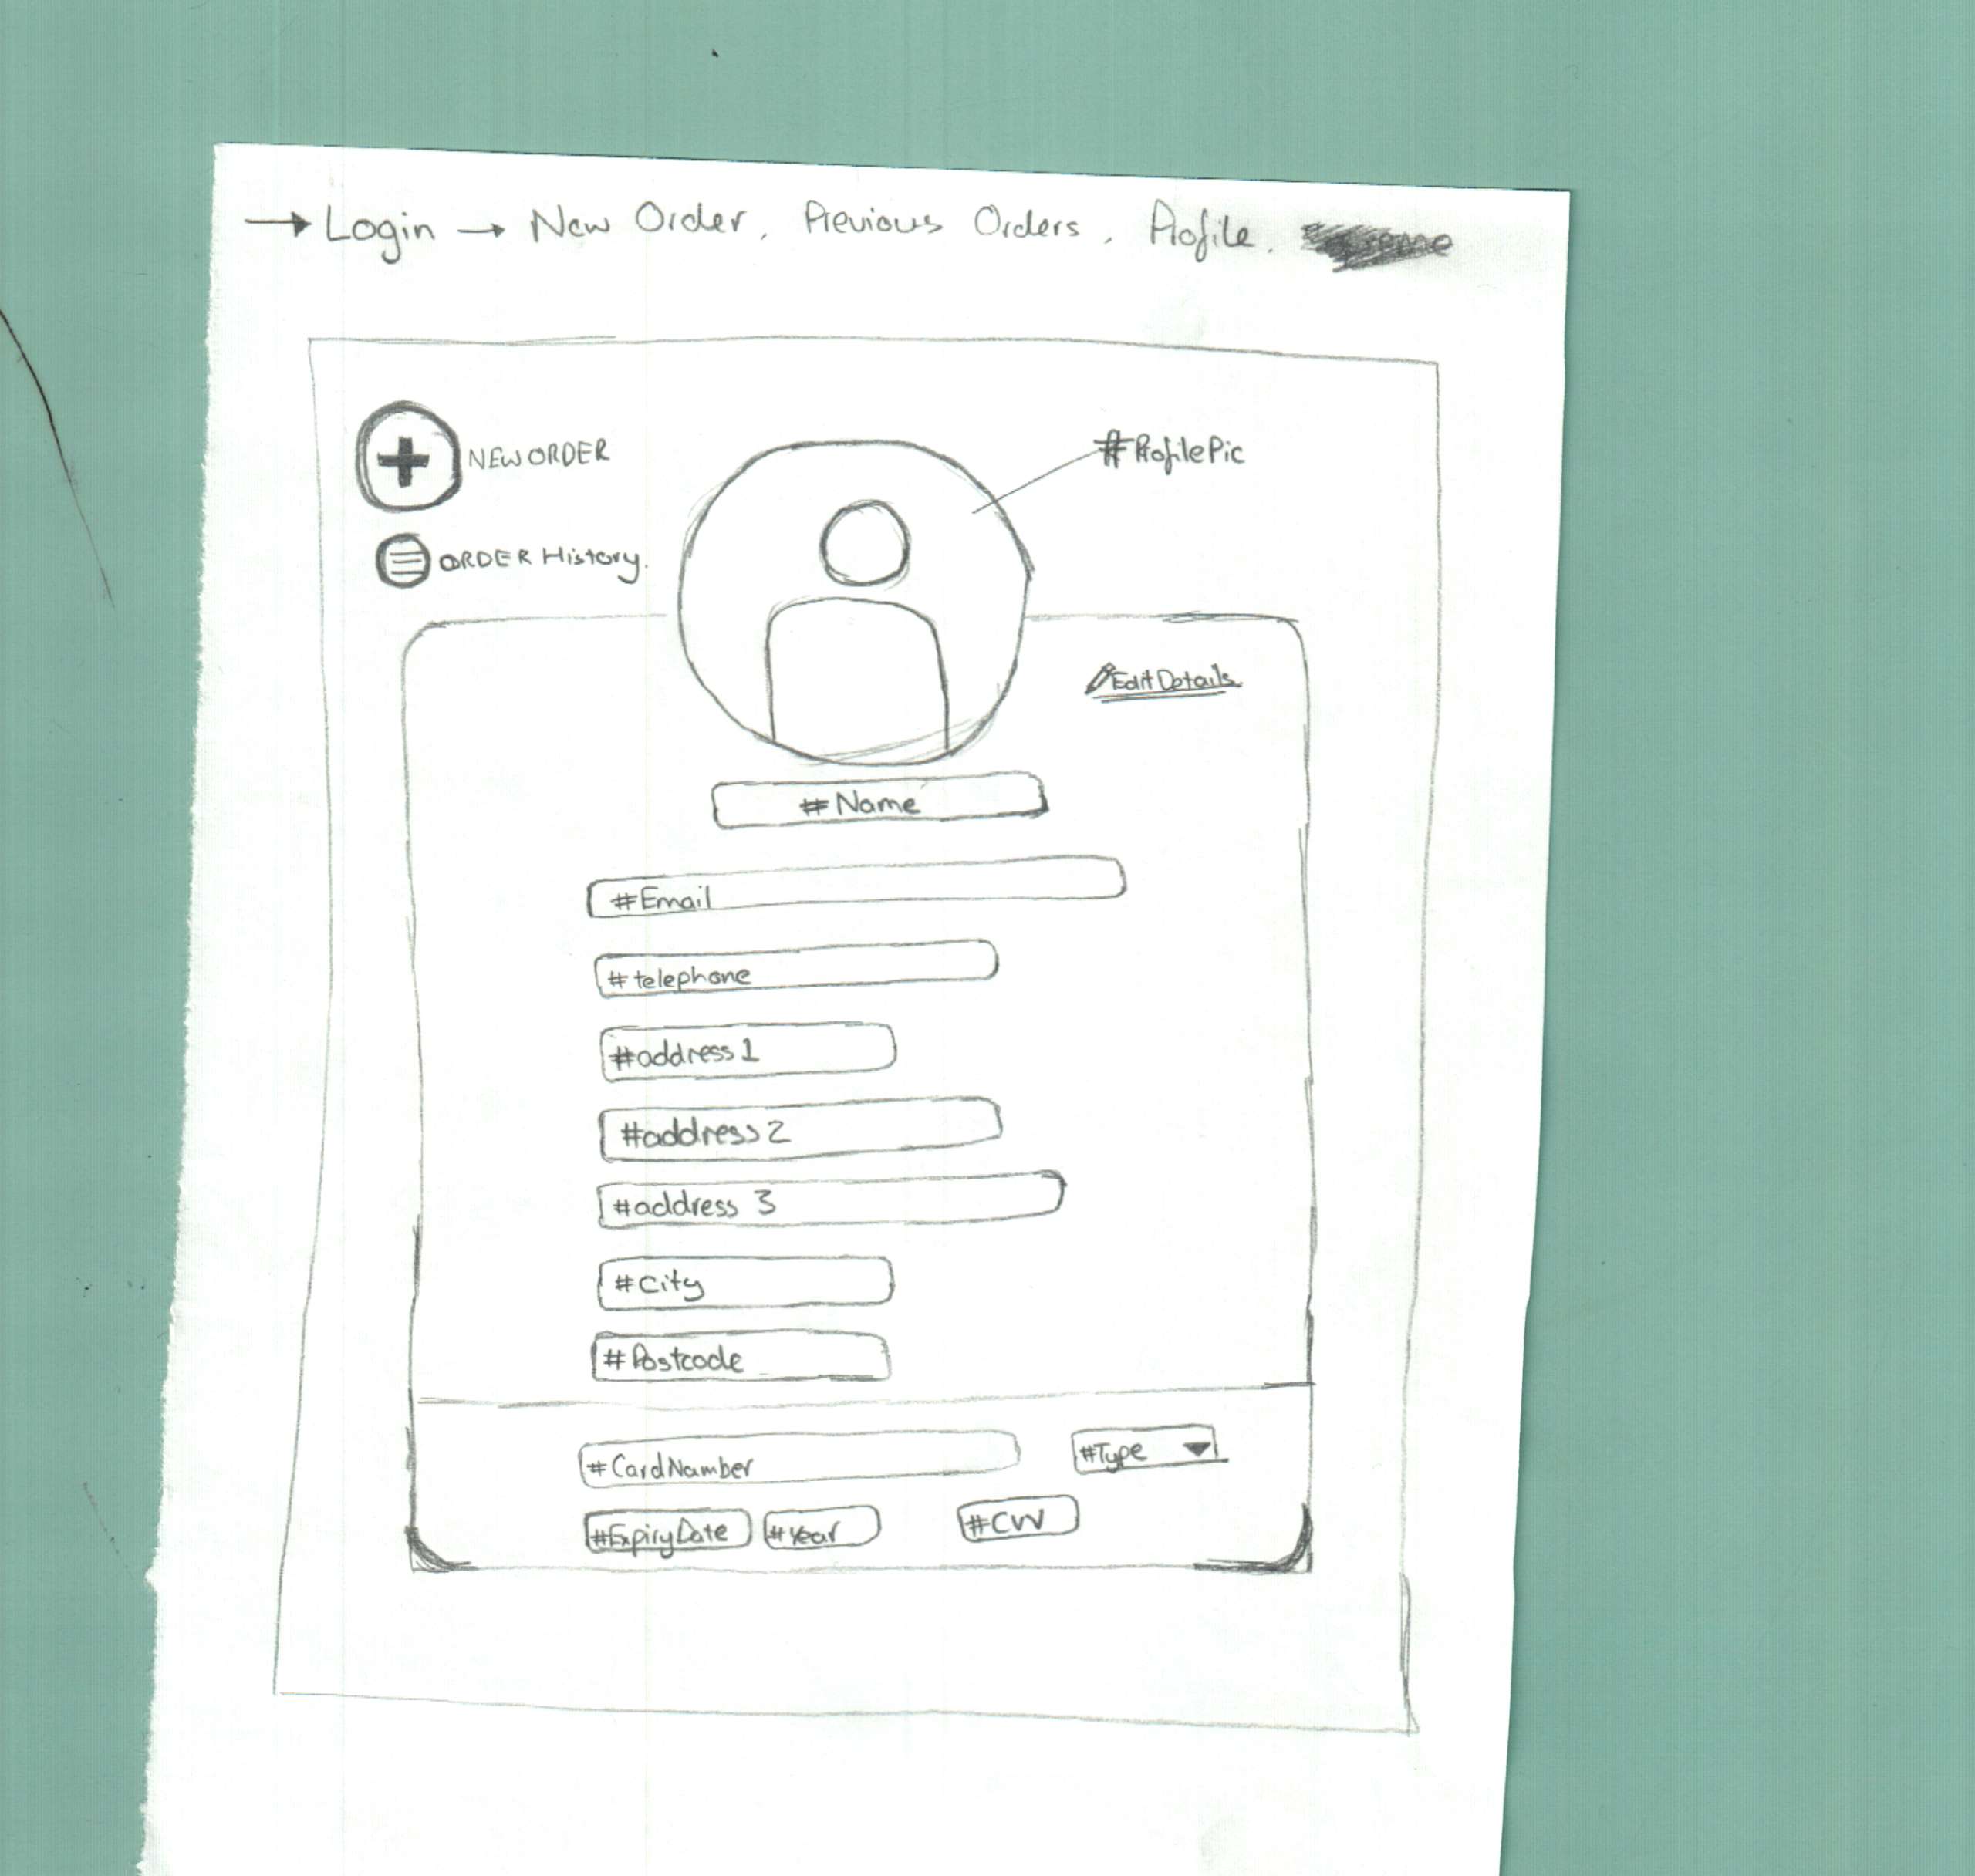 → Login → New Order, Previous Orders, Profile.
NEW ORDER
#ProfilePic
ORDER History.
Edit Details
#Name
#Email
#telephone
#address1
#address2
#address 3
#City
#Postcode
#CardNumber
#Type
#ExpiryDate #Year #CVV